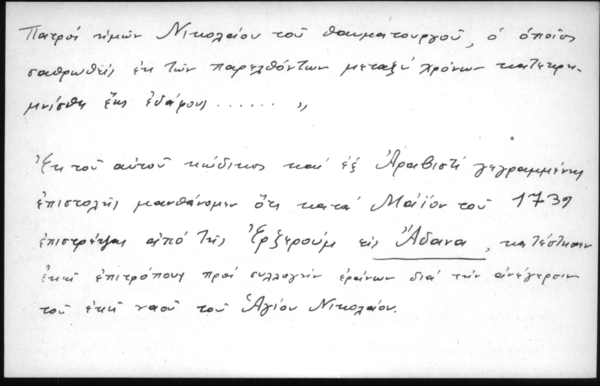 Πατρός ἡμῶν Νικολαίου τοῦ θαυματουργοῦ, ὁ ὁποῖος
σαθρωθείς ἐκ τῶν παρελθόντων μεταξύ χρόνων κατεκρη-
μνίσθη ἕως ἐδάφους...... „
Ἐκ τοῦ αὐτοῦ κώδικος καί ἐξ Ἀραβιστί γεγραμμένης
ἐπιστολῆς μανθάνομεν ὅτι κατά Μάϊον τοῦ 1739
ἐπιστρέψας ἀπό τῆς Ἐρζερούμ εἰς Ἄδανα, κατέστησεν
ἐκεῖ ἐπιτρόπους πρός συλλογήν ἐράνων διά τήν ἀνέγερσιν
τοῦ ἐκεῖ ναοῦ τοῦ Ἁγίου Νικολάου.